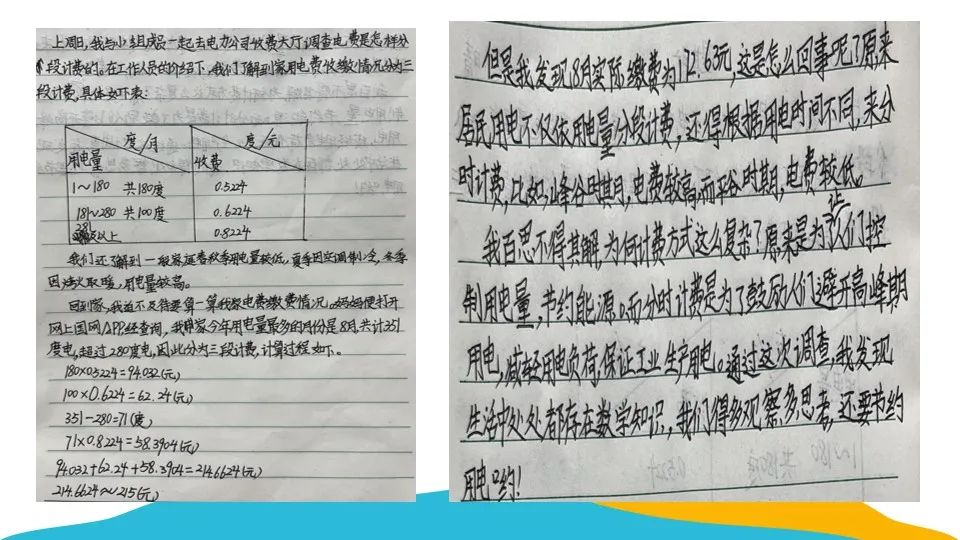 上周日,我与小组成员一起去电力公司收费大厅调查电费是怎样分
段计费的。在工作人员的介绍下,我们了解到家用电费收缴情况分为三
段计费,具体如下表:
度/月 度/元
用电量 收费
1~180 共180度 0.5224
181~280 共100度 0.6224
281及以上 0.8224
我们还了解到一般家庭春秋季用电量较低,夏季因空调制冷,冬季
因烤火取暖,用电量较高。
回到家,我迫不及待要算一算我家电费缴费情况。妈妈便打开
网上国网APP经查询,我家今年用电量最多的月份是8月,共计351
度电,超过280度电,因此分为三段计费,计算过程如下。
180×0.5224=94.032(元)
100×0.6224=62.24(元)
351-280=71(度)
71×0.8224=58.3904(元)
94.032+62.24+58.3904=214.6624(元)
214.6624≈215(元)
但是我发现8月实际缴费为172.63元,这是怎么回事呢?原来
居民用电不仅依用电量分段计费,还得根据用电时间不同,来分
时计费,比如峰谷时期,电费较高,而平谷时期,电费较低。
我百思不得其解,为何计费方式这么复杂?原来是为了让人们控
制用电量,节约能源。而分时计费是为了鼓励人们避开高峰期
用电,减轻用电负荷,保证工业生产用电。通过这次调查,我发现
生活中处处都存在数学知识,我们得多观察多思考,还要节约
用电哟!